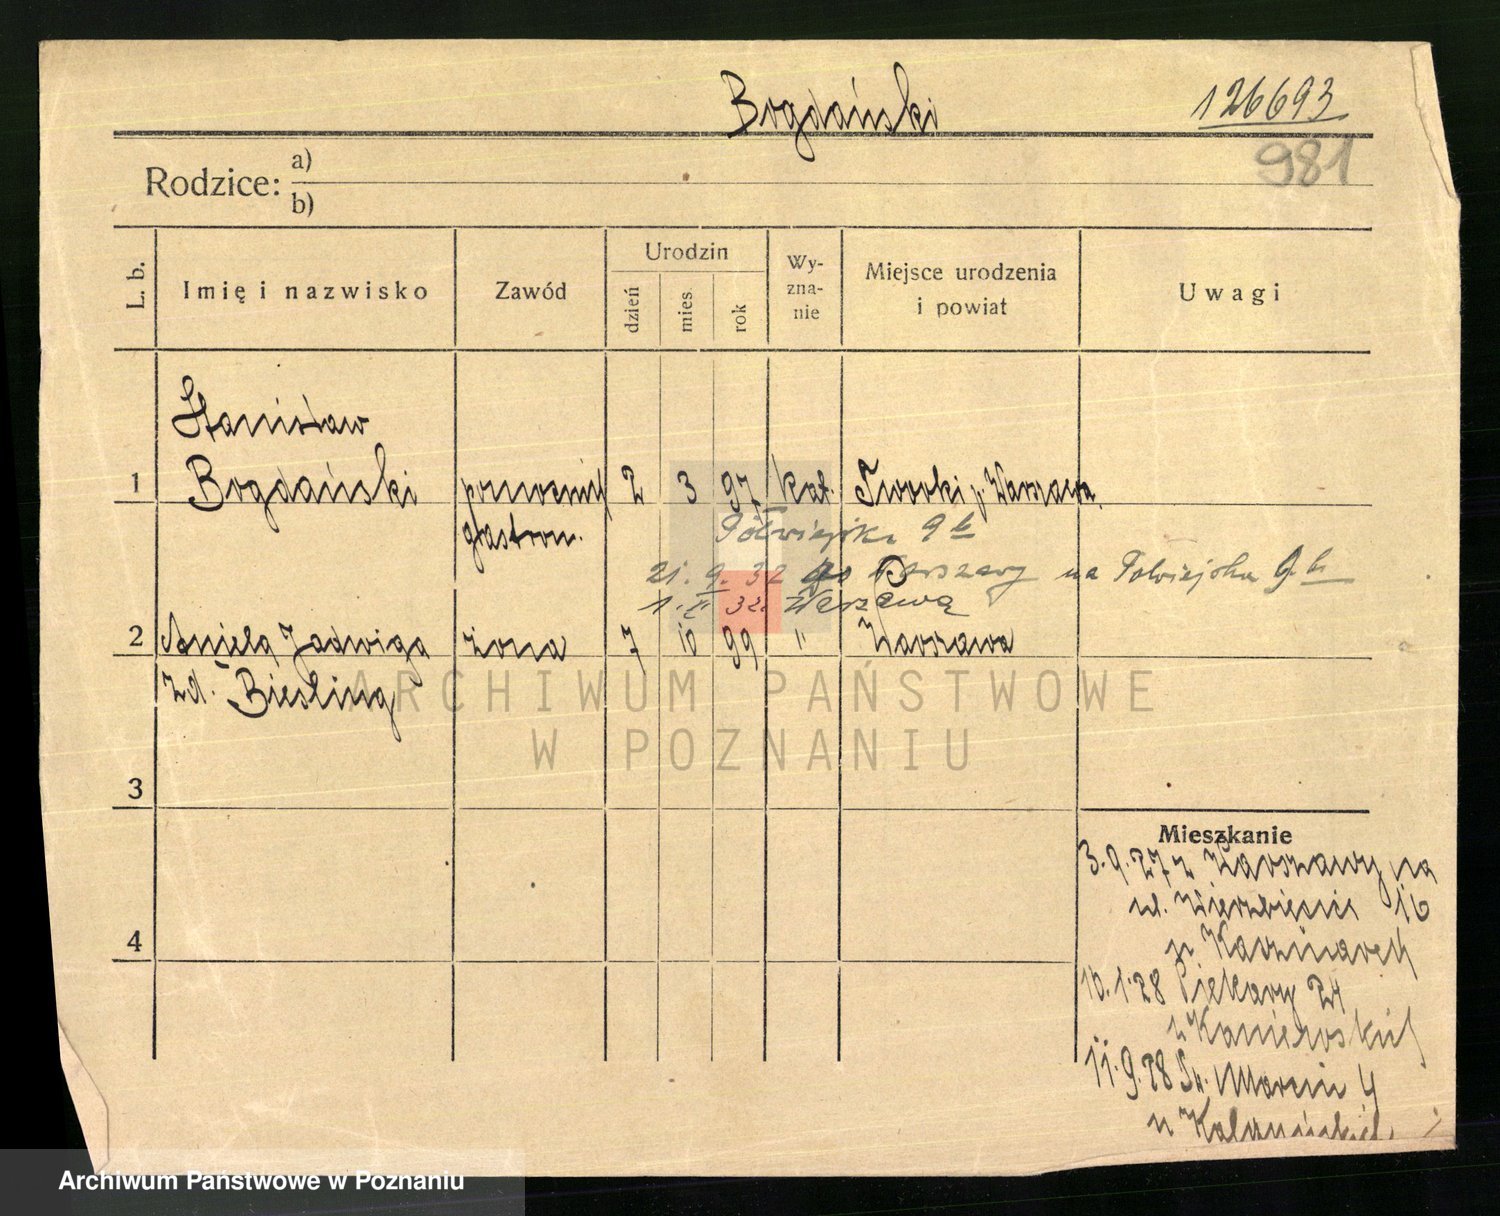 Bogdański
126693
981
Rodzice: a)
b)
L. b.
Imię i nazwisko
Zawód
Urodzin
dzień
mies.
rok
Wy-
zna-
nie
Miejsce urodzenia
i powiat
Uwagi
Stanisław
1 Bogdański pomocnik 2 3 97 kat. Tworki p. Warszawa
gastron.
Półwiejska 9 b
21. 9. 32 do Warszawy na Półwiejska 9 b
1. 32. Warszawa
2 Aniela Jadwiga żona 7 10 99 " Warszawa
zd. Biesling
ARCHIWUM PAŃSTWOWE
W POZNANIU
3
Mieszkanie
3. 9. 27 z Warszawy na
ul. Wierzbięcic 16
u Kaczmarek
4
10. 1. 28 Piekary 24
u Kaniewskich
11. 9. 28 Św. Marcin 4
u
Archiwum Państwowe w Poznaniu